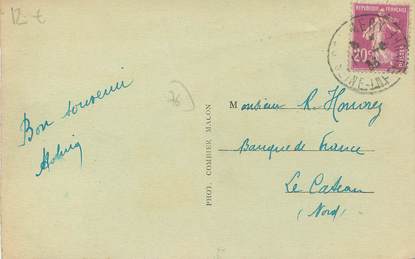 Bon souvenir
PHOT. COMBIER MACON
RÉPUBLIQUE FRANÇAISE
20c
POSTES
Monsieur R.
Banque de France
Le Cateau
(Nord)